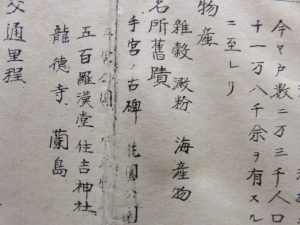 今ヤ戸数二万三千人口
十一万八千余ヲ有スル
ニ至レリ
物産
雑穀 澱粉 海産物
名所舊蹟
手宮ノ古碑 花園公園
手宮公園
五百羅漢堂 住吉神社
龍徳寺 蘭島
交通里程